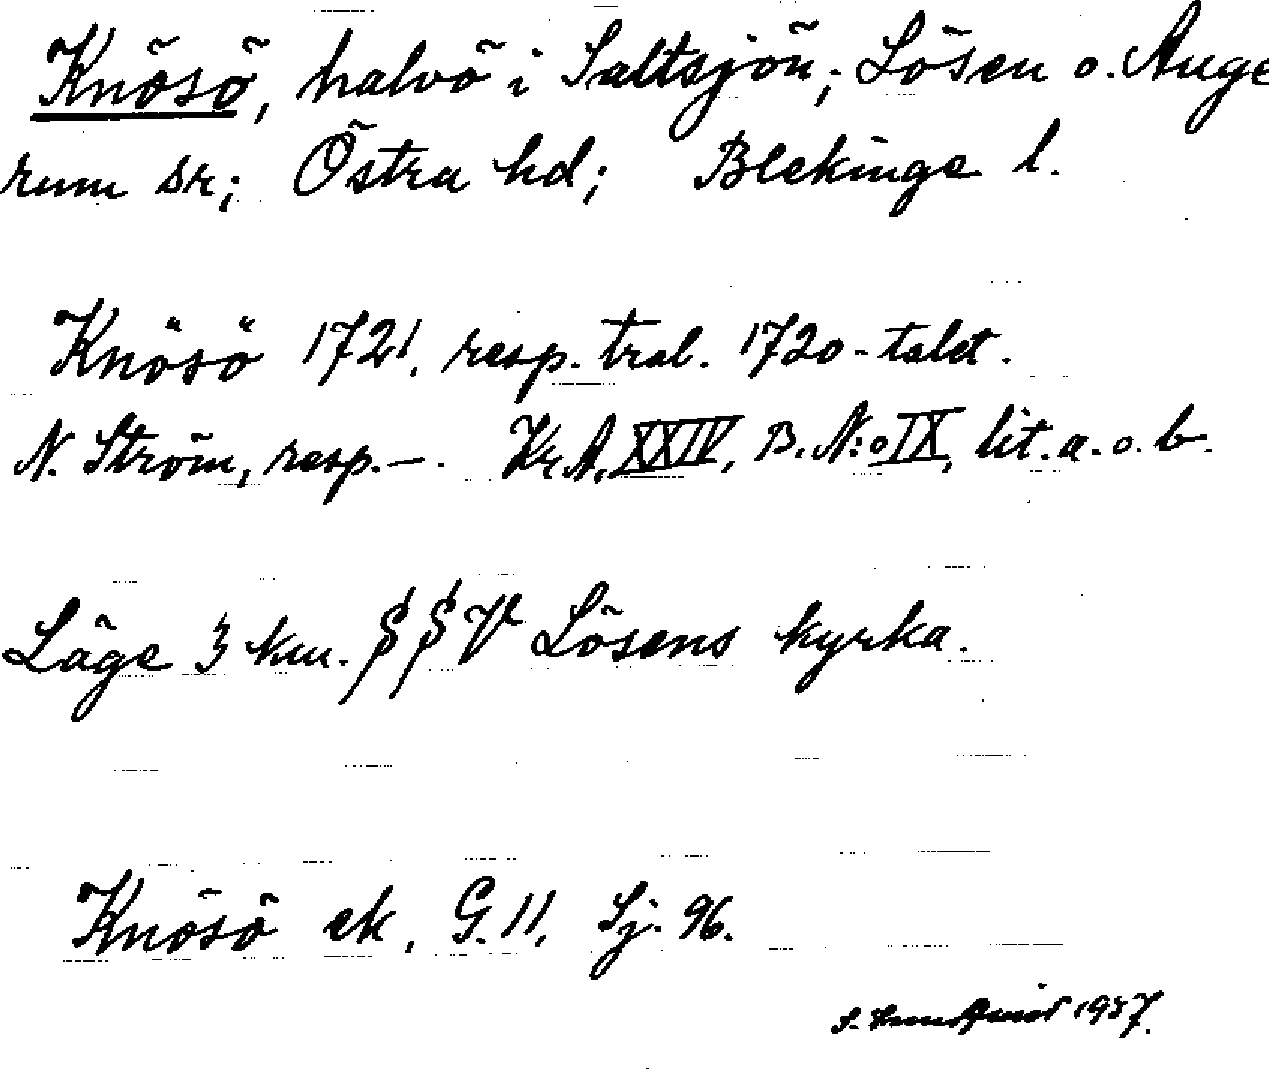 Knösö, halvö i Saltsjön; Lösen o. Auge
rum sr; Östra hd; Blekinge l.
Knösö 1721, resp. trol. 1720-talet.
N. Ström, resp. —. Kr.A. XXIV, B. N:o IX, lit. a. o. b.
Läge 3 km. SSV Lösens kyrka.
Knösö ek. G. 11. Sj. 96.
S. 1937.